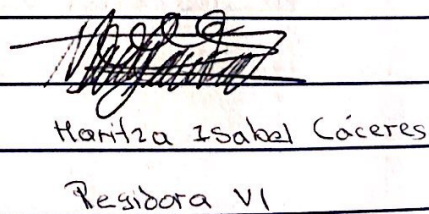 Maritza Isabel Cáceres
Regidora VI